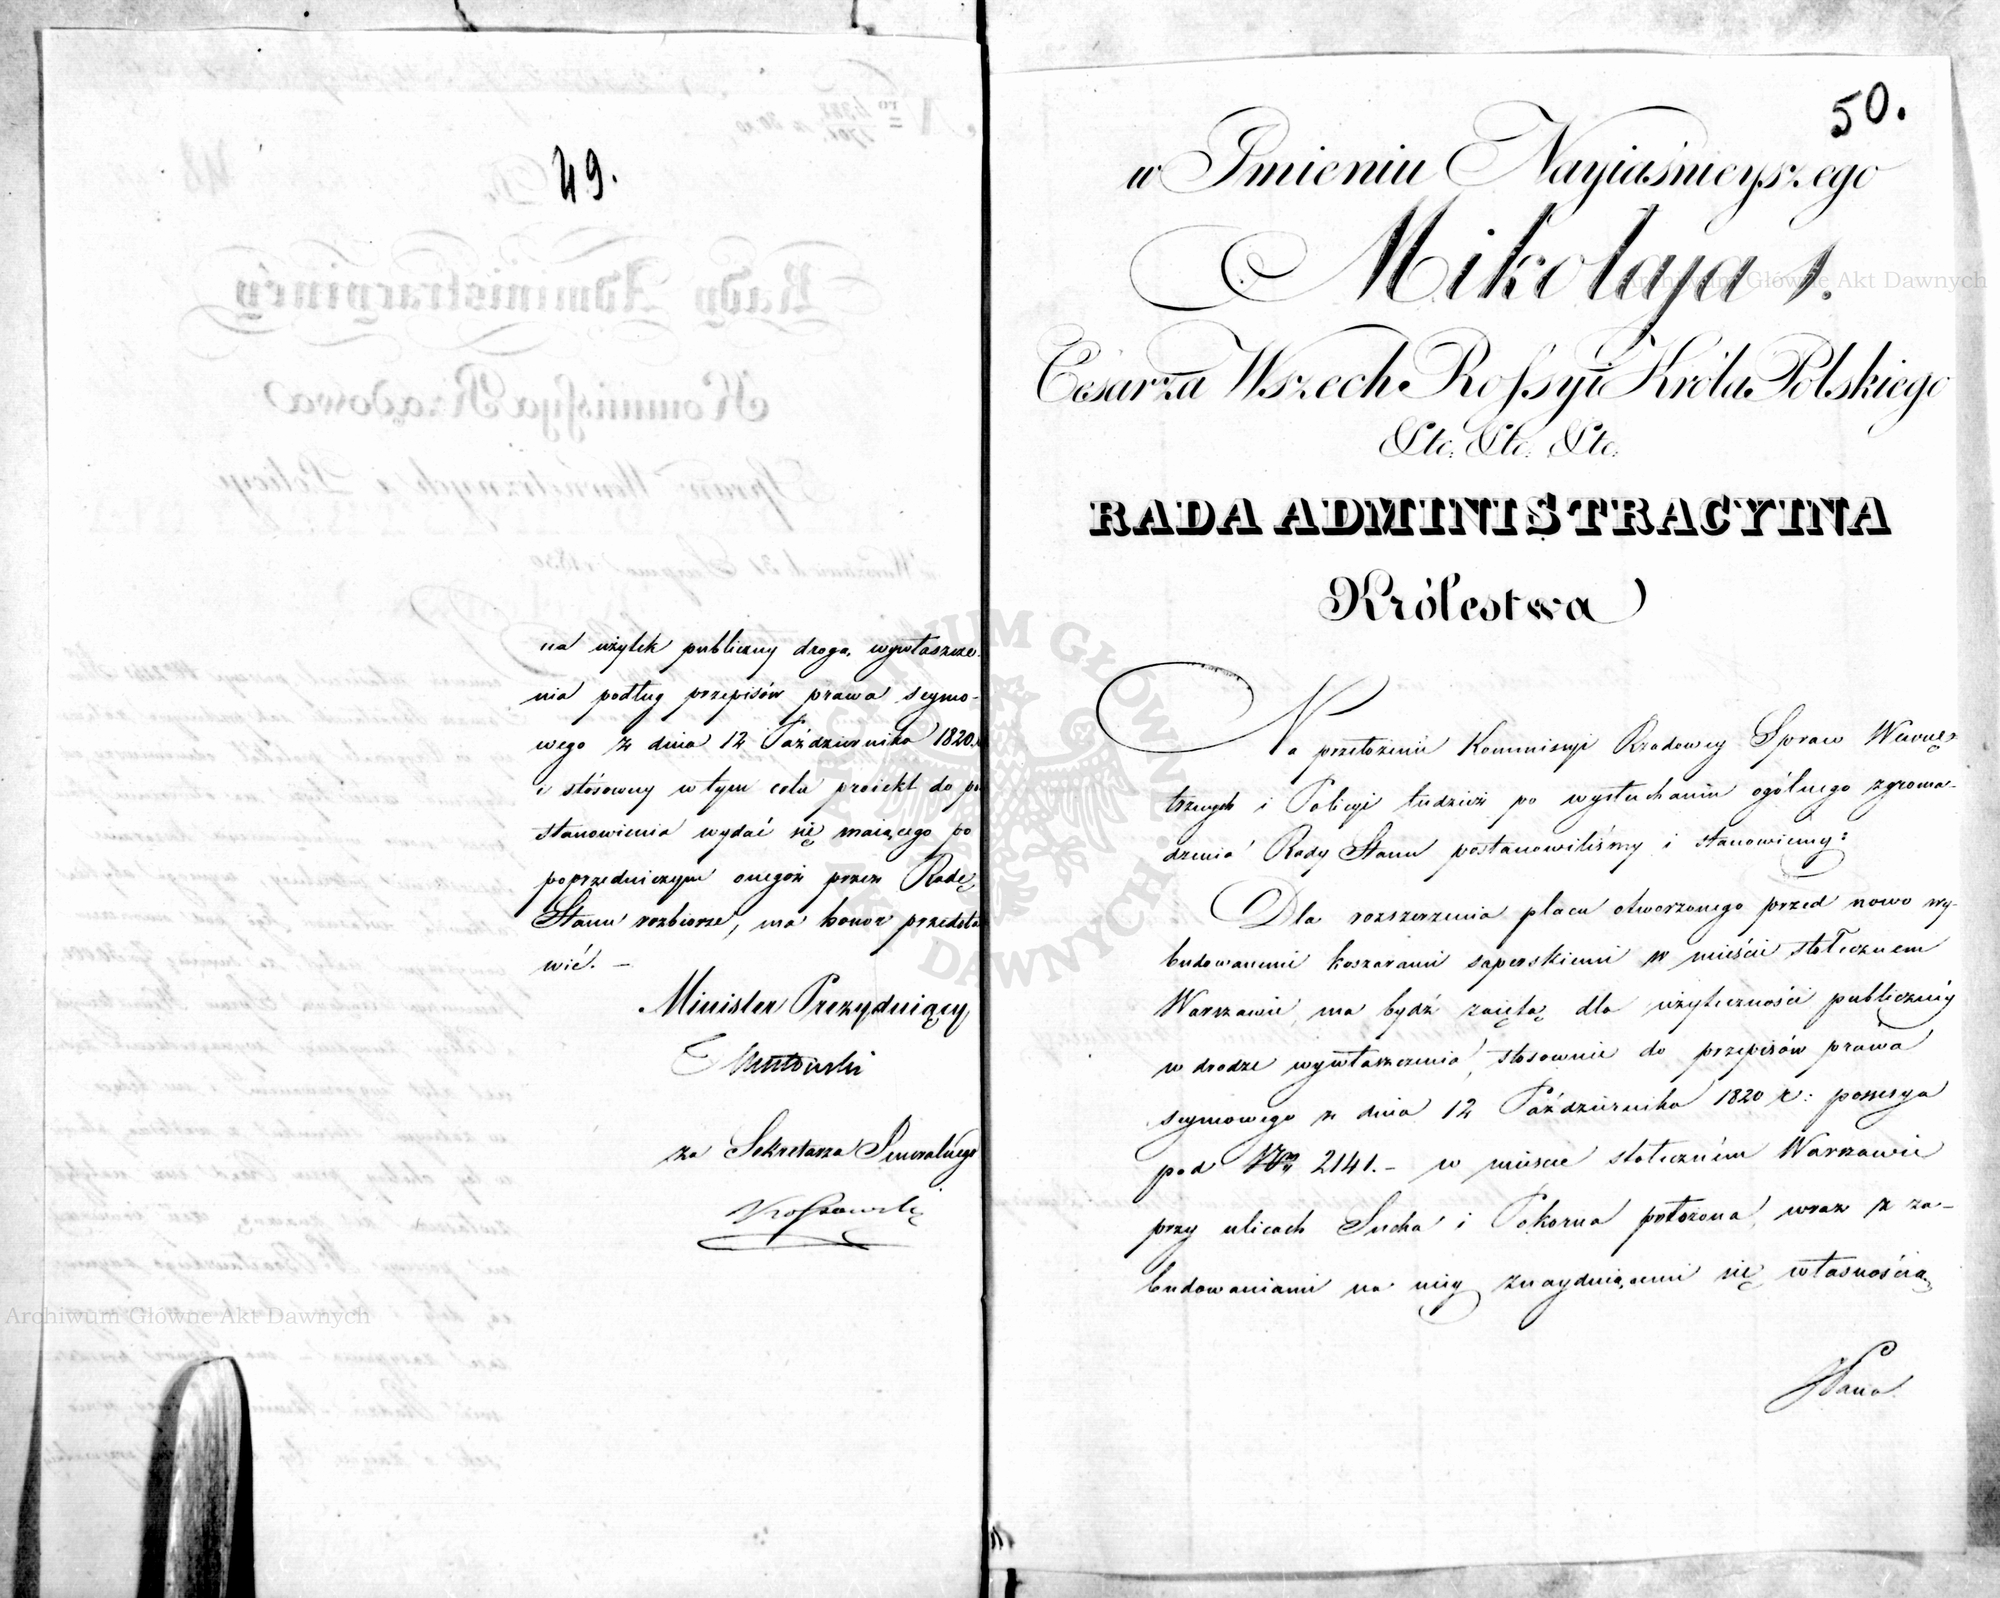 49.
na użytek publiczny drogą wywłaszcze-
nia podług przepisów prawa seymo-
wego z dnia 12 Października 1820.
i stósowny w tym celu proiekt do po
stanowienia wydać się maiącego po
poprzedniczym onegoż przez Radę
Stanu rozbiorze, ma honor przedsta
wić. —
Minister Prezyduiący
za Sekretarza Jeneralnego
50.
w Imieniu Nayiaśnieyszego
Mikołaja I.
Cesarza Wszech Rossyi Króla Polskiego
Etc. Etc. Etc.
RADA ADMINISTRACYINA
Królestwa
Na przełożenie Kommissyi Rządowey Spraw Wewnę-
trznych i Policyi tudzież po wysłuchaniu ogólnego zgroma-
dzenia Rady Stanu postanowiliśmy i stanowiemy:
Dla rozszerzenia placu otworzonego przed nowo wy-
budowanemi koszarami saperskiemi w mieście stołecznem
Warszawie, ma bydź zaiętą dla użyteczności publiczney
w drodze wywłaszczenia, stosownie do przepisów prawa
seymowego z dnia 12 Października 1820 r: possesya
pod Nrm 2141. – w mieście stołeczném Warszawie
przy ulicach Sucha i Pokorna położona, wraz z za-
budowaniami na niey znayduiącemi się własnością
Pana
Archiwum Główne Akt Dawnych
Archiwum Główne Akt Dawnych